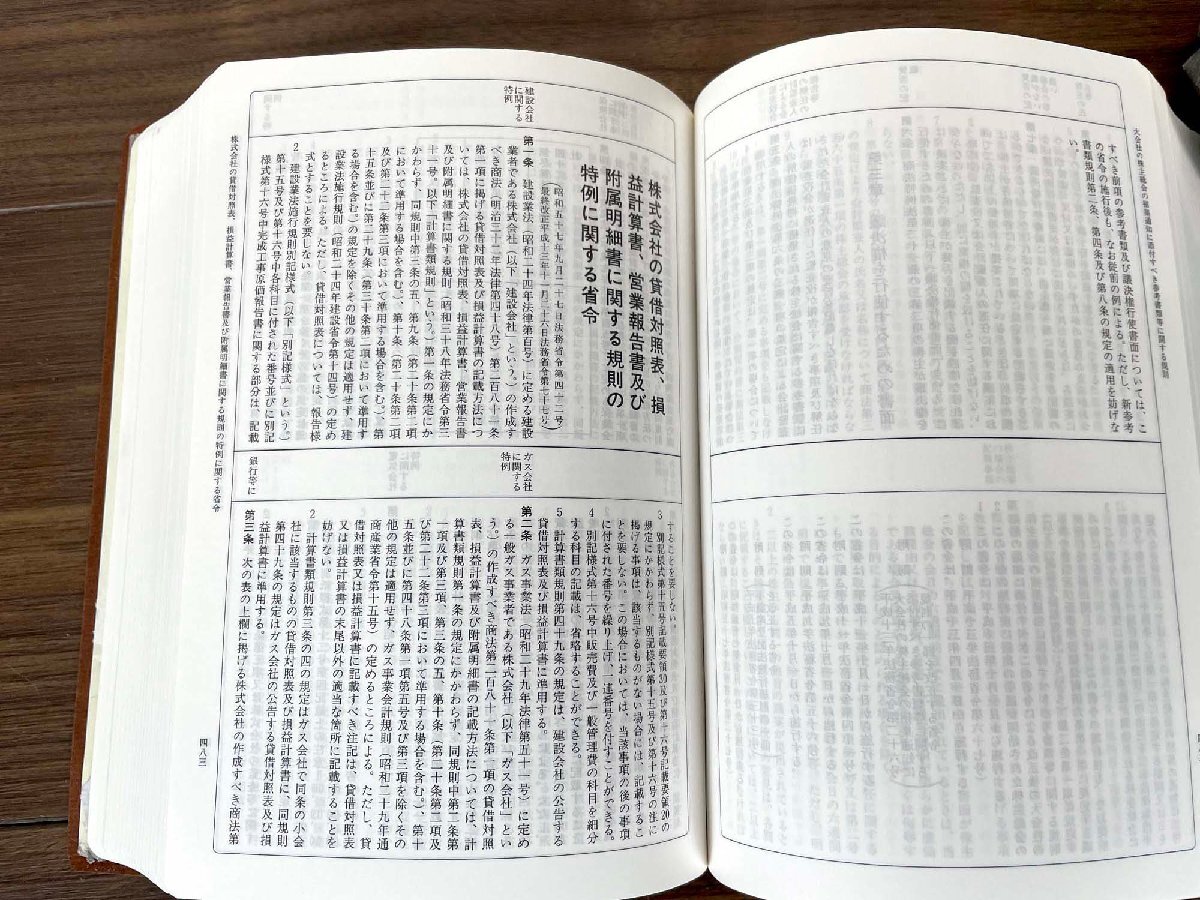 大会社の株主総会の招集通知に添付すべき参考書類等に関する規則
すべき前項の参考書類及び議決権行使書面については、こ
の省令の施行後も、なお従前の例による。ただし、新参考
書類規則第二条、第四条及び第八条の規定の適用を妨げな
い。
建設会社
に関する
特例
株式会社の貸借対照表、損
益計算書、営業報告書及び
附属明細書に関する規則の
特例に関する省令
(昭和五十七年九月二十七日法務省令第四十二号)
第一条 建設業法(昭和二十四年法律第百号)に定める建設
業者である株式会社(以下「建設会社」という。)の作成す
べき商法(明治三十二年法律第四十八号)第二百八十一条
第一項に掲げる貸借対照表及び損益計算書の記載方法につ
いては、株式会社の貸借対照表、損益計算書、営業報告書
及び附属明細書に関する規則(昭和三十八年法務省令第三
十一号。以下「計算書類規則」という。)第一条の規定にか
かわらず、同規則中第三条の五、第九条(第二十条第二項
において準用する場合を含む。)、第十条(第二十条第二項
及び第二十二条第三項において準用する場合を含む。)、第
十五条並びに第二十九条(第三十条第二項において準用す
る場合を含む。)の規定を除くその他の規定は適用せず、建
設業法施行規則(昭和二十四年建設省令第十四号)の定め
るところによる。ただし、貸借対照表については、報告様
式とすることを要しない。
2 建設業法施行規則別記様式(以下「別記様式」という。)
第十五号及び第十六号中各科目に付された番号並びに別記
様式第十六号中完成工事原価報告書に関する部分は、記載
ガス会社
に関する
特例
銀行等に
することを要しない。
3 別記様式第十五号記載要領30及び第十六号記載要領20の
規定にかかわらず、別記様式第十五号及び第十六号の注に
掲げる事項は、該当するものがない場合には、記載するこ
とを要しない。この場合においては、当該事項の後の事項
に付された番号を繰り上げ、一連番号を付すことができる。
4 別記様式第十六号中販売費及び一般管理費の科目を細分
する科目の記載は、省略することができる。
5 計算書類規則第四十九条の規定は、建設会社の公告する
貸借対照表及び損益計算書に準用する。
第二条 ガス事業法(昭和二十九年法律第五十一号)に定め
る一般ガス事業者である株式会社(以下「ガス会社」とい
う。)の作成すべき商法第二百八十一条第一項の貸借対照
表、損益計算書及び附属明細書の記載方法については、計
算書類規則第一条の規定にかかわらず、同規則中第二条第
一項及び第三項、第三条の五、第十条(第二十条第二項及
び第二十二条第三項において準用する場合を含む。)、第十
五条並びに第四十八条第一項第五号及び第三項を除くその
他の規定は適用せず、ガス事業会計規則(昭和二十九年通
商産業省令第十五号)の定めるところによる。ただし、貸
借対照表又は損益計算書に記載すべき注記は、貸借対照表
又は損益計算書の末尾以外の適当な箇所に記載することを
妨げない。
2 計算書類規則第三条の四の規定はガス会社で同条の小会
社に該当するものの貸借対照表及び損益計算書に、同規則
第四十九条の規定はガス会社の公告する貸借対照表及び損
益計算書に準用する。
第三条 次の表の上欄に掲げる株式会社の作成すべき商法第
株式会社の貸借対照表、損益計算書、営業報告書及び附属明細書に関する規則の特例に関する省令
四八三